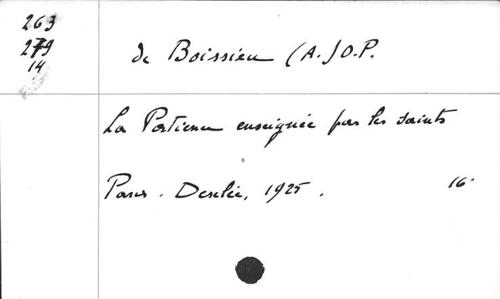 263
279
14
de Boissieu (A.) O.P.
La Patience enseignée par les saints
Paris. Desclée, 1925.
16°